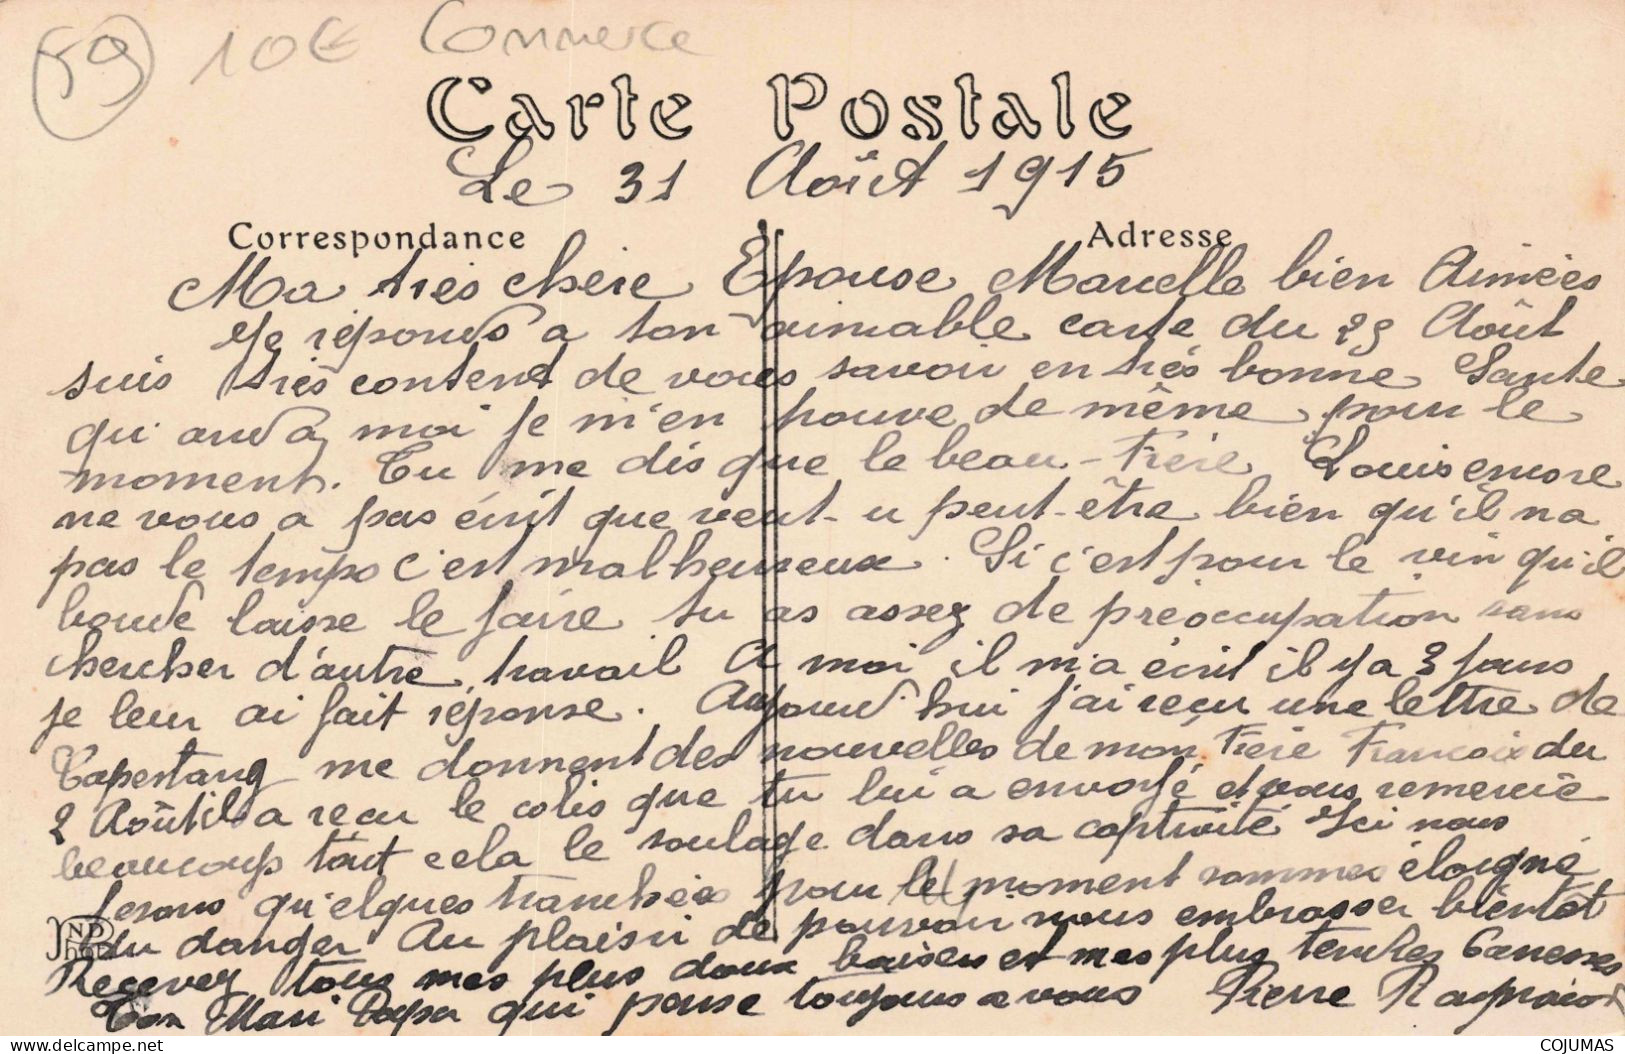 59 10€ Commerce
Carte Postale
Le 31 Août 1915
Correspondance Adresse
Ma très chère Epouse Marcelle bien Aimées
Je réponds a ton aimable carte du 29 Août
suis très contend de vous savoir en très bonne Sante
qui and a moi je m'en trouve de même pour le
moment. Tu me dis que le beau-Frère Louis encore
ne vous a pas écrit que veut-u peut-être bien qu'il na
pas le temps c'est malheureux. Si c'est pour le vin qu'il
boude laisse le faire tu as assez de préoccupation sans
chercher d'autre travail A moi il m'a écrit il y a 3 jours
je leur ai fait réponse. Aujourd'hui j'ai reçu une lettre de
Capestang me donnent des nouvelles de mon Frère Francois du
2 Août il a recu le colis que tu lui a envoyé et vous remercie
beaucoup tout cela le soulage dans sa captivité Ici nous
fesons qu'elques tranchées pour le moment sommes éloigné
du danger Au plaisir de pouvoir vous embrasser bientôt
ND Phot
Recevez tous mes plus doux baisers et mes plus tendres Caresses
Ton Mari Papa qui pense toujours a vous Pierre
COJUMAS
www.delcampe.net